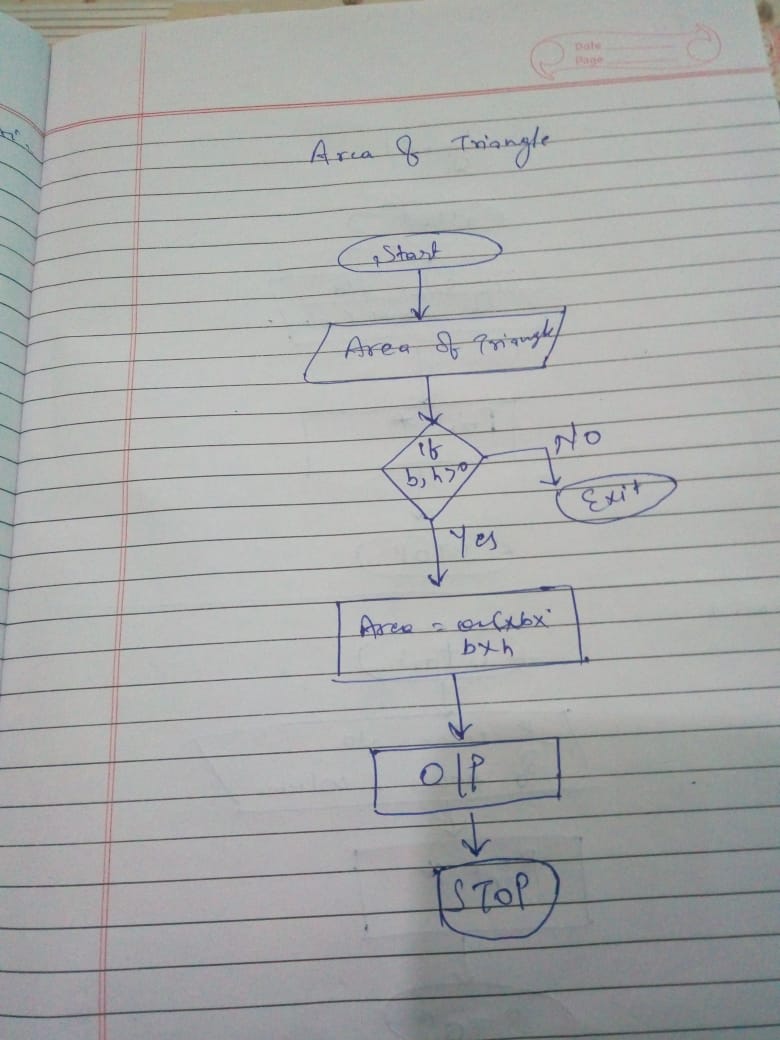 Date
Page
Area of Triangle
Start
Area of Triangle
if
b,h>0
NO
Exit
Yes
Area =
b×h
O/P
STOP